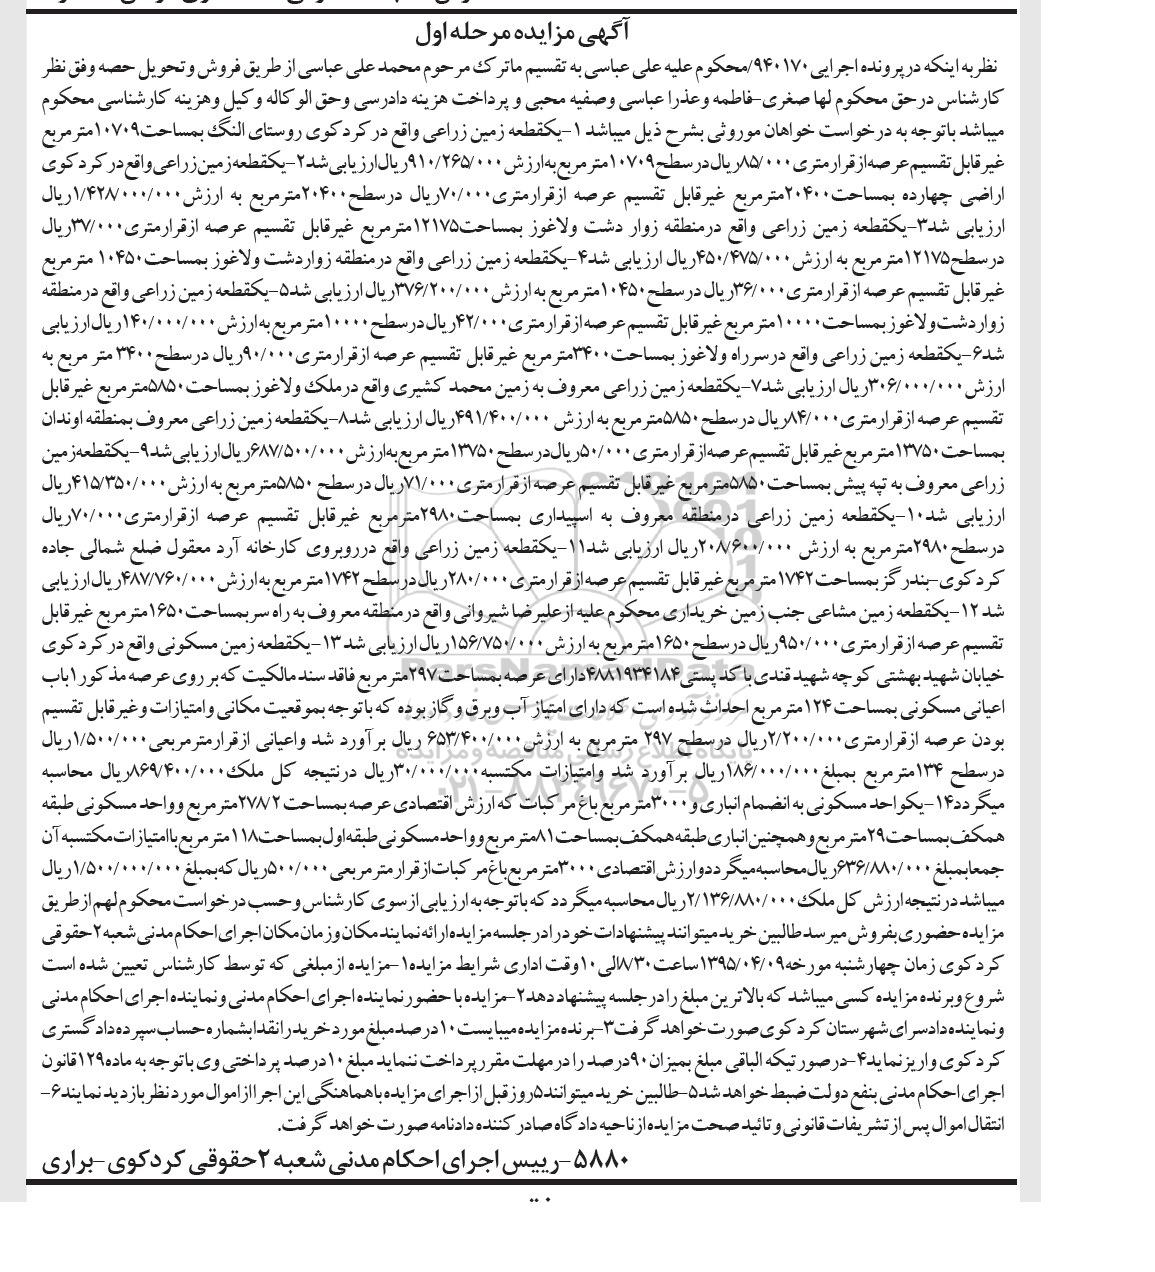 آگهی مزایده مرحله اول
نظربه اینکه درپرونده اجرایی۹۴۰۱۷۰/محکوم علیه علی عباسی به تقسیم ماترك مرحوم محمد علی عباسی از طریق فروش وتحویل حصه وفق نظر
کارشناس درحق محکوم لها صغری-فاطمه وعذرا عباسی وصفیه محبی و پرداخت هزینه دادرسی وحق الوکاله وکیل وهزینه کارشناسی محکوم
میباشد باتوجه به درخواست خواهان موروثی بشرح ذیل میباشد ۱-یکقطعه زمین زراعی واقع در کردکوی روستای النگ بمساحت۱۰۷۰۹مترمربع
غیرقابل تقسیم عرصه ازقرارمتری ۸۵/۰۰۰ریال درسطح۱۰۷۰۹مترمربع به ارزش ۹۱۰/۲۶۵/۰۰۰ریال ارزیابی شد۲-یکقطعه زمین زراعی واقع در کردکوی
اراضی چهارده بمساحت۲۰۴۰۰مترمربع غیرقابل تقسیم عرصه ازقرارمتری۷۰/۰۰۰ریال درسطح۲۰۴۰۰مترمربع به ارزش۱/۴۲۸/۰۰۰/۰۰۰ریال
ارزیابی شد۳-یکقطعه زمین زراعی واقع درمنطقه زوار دشت ولاغوز بمساحت۱۲۱۷۵مترمربع غیرقابل تقسیم عرصه ازقرارمتری۳۷/۰۰۰ریال
درسطح۱۲۱۷۵مترمربع به ارزش۴۵۰/۴۷۵/۰۰۰ریال ارزیابی شد۴-یکقطعه زمین زراعی واقع درمنطقه زواردشت ولاغوز بمساحت۱۰۴۵۰ مترمربع
غیرقابل تقسیم عرصه ازقرارمتری۳۶/۰۰۰ریال درسطح۱۰۴۵۰مترمربع به ارزش۳۷۶/۲۰۰/۰۰۰ریال ارزیابی شد۵-یکقطعه زمین زراعی واقع درمنطقه
زواردشت ولاغوز بمساحت۱۰۰۰۰مترمربع غیرقابل تقسیم عرصه ازقرارمتری۴۲/۰۰۰ریال درسطح۱۰۰۰۰مترمربع به ارزش۱۴۰/۰۰۰/۰۰۰ریال ارزیابی
شد۶-یکقطعه زمین زراعی واقع درسرراه ولاغوز بمساحت۳۴۰۰مترمربع غیرقابل تقسیم عرصه ازقرارمتری۹۰/۰۰۰ریال درسطح۳۴۰۰متر مربع به
ارزش۳۰۶/۰۰۰/۰۰۰ریال ارزیابی شد۷-یکقطعه زمین زراعی معروف به زمین محمد کشیری واقع درملک ولاغوز بمساحت۵۸۵۰مترمربع غیرقابل
تقسیم عرصه ازقرارمتری۸۴/۰۰۰ریال درسطح۵۸۵۰مترمربع به ارزش ۴۹۱/۴۰۰/۰۰۰ریال ارزیابی شد۸-یکقطعه زمین زراعی معروف بمنطقه اوندان
بمساحت۱۳۷۵۰مترمربع غیرقابل تقسیم عرصه ازقرارمتری۵۰/۰۰۰ریال درسطح۱۳۷۵۰مترمربع به ارزش۶۸۷/۵۰۰/۰۰۰ریال ارزیابی شد۹-یکقطعه زمین
زراعی معروف به تپه پیش بمساحت۵۸۵۰مترمربع غیرقابل تقسیم عرصه ازقرارمتری۷۱/۰۰۰ریال درسطح ۵۸۵۰مترمربع به ارزش۴۱۵/۳۵۰/۰۰۰ریال
ارزیابی شد۱۰-یکقطعه زمین زراعی درمنطقه معروف به اسپیداری بمساحت۲۹۸۰مترمربع غیرقابل تقسیم عرصه ازقرارمتری۷۰/۰۰۰ریال
درسطح۲۹۸۰مترمربع به ارزش ۲۰۸/۶۰۰/۰۰۰ریال ارزیابی شد۱۱-یکقطعه زمین زراعی واقع درروبروی کارخانه آرد معقول ضلع شمالی جاده
کردکوی-بندرگز بمساحت۱۷۴۲مترمربع غیرقابل تقسیم عرصه ازقرارمتری۲۸۰/۰۰۰ریال درسطح ۱۷۴۲مترمربع به ارزش ۴۸۷/۷۶۰/۰۰۰ریال ارزیابی
شد ۱۲-یکقطعه زمین مشاعی جنب زمین خریداری محکوم علیه ازعلیرضا شیروانی واقع درمنطقه معروف به راه سربمساحت۱۶۵۰مترمربع غیرقابل
تقسیم عرصه ازقرارمتری۹۵۰/۰۰۰ریال درسطح۱۶۵۰مترمربع به ارزش۱۵۶/۷۵۰/۰۰۰ریال ارزیابی شد۱۳-یکقطعه زمین مسکونی واقع در کردکوی
خیابان شهید بهشتی کوچه شهید قندی با کد پستی۴۸۸۱۹۳۴۱۸۴دارای عرصه بمساحت۲۹۷مترمربع فاقد سند مالکیت که بر روی عرصه مذکور۱باب
اعیانی مسکونی بمساحت۱۲۴مترمربع احداث شده است که دارای امتیاز آب وبرق وگاز بوده که باتوجه بموقعیت مکانی وامتیازات وغیرقابل تقسیم
بودن عرصه ازقرارمتری۲/۲۰۰/۰۰۰ریال درسطح ۲۹۷ مترمربع به ارزش۶۵۳/۴۰۰/۰۰۰ ریال برآورد شد واعیانی ازقرارمترمربعی۱/۵۰۰/۰۰۰ریال
درسطح ۱۳۴مترمربع بمبلغ۱۸۶/۰۰۰/۰۰۰ریال برآورد شد وامتیازات مکتسبه۳۰/۰۰۰/۰۰۰ریال درنتیجه کل ملک۸۶۹/۴۰۰/۰۰۰ریال محاسبه
میگردد۱۴-یکواحد مسکونی به انضمام انباری و۳۰۰۰مترمربع باغ مرکبات که ارزش اقتصادی عرصه بمساحت ۲۷۸/۲مترمربع وواحد مسکونی طبقه
همکف بمساحت۲۹مترمربع وهمچنین انباری طبقه همکف بمساحت۸۱مترمربع وواحد مسکونی طبقه اول بمساحت۱۱۸مترمربع باامتیازات مکتسبه آن
جمعابمبلغ۶۳۶/۸۸۰/۰۰۰ریال محاسبه میگرددوارزش اقتصادی۳۰۰۰مترمربع باغ مرکبات ازقرارمترمربعی۵۰۰/۰۰۰ریال که بمبلغ۱/۵۰۰/۰۰۰/۰۰۰ریال
میباشد درنتیجه ارزش کل ملک۲/۱۳۶/۸۸۰/۰۰۰ریال محاسبه میگردد که باتوجه به ارزیابی ازسوی کارشناس وحسب درخواست محکوم لهم ازطریق
مزایده حضوری بفروش میرسد طالبین خرید میتوانند پیشنهادات خود را در جلسه مزایده ارائه نمایند مکان وزمان مکان اجرای احکام مدنی شعبه۲حقوقی
کردکوی زمان چهارشنبه مورخه۱۳۹۵/۰۴/۰۹ساعت۸/۳۰الی۱۰وقت اداری شرایط مزایده۱-مزایده ازمبلغی که توسط کارشناس تعیین شده است
شروع وبرنده مزایده کسی میباشد که بالاترین مبلغ را درجلسه پیشنهاد دهد۲-مزایده با حضورنماینده اجرای احکام مدنی ونماینده اجرای احکام مدنی
ونماینده دادسرای شهرستان کردکوی صورت خواهد گرفت۳-برنده مزایده میبایست۱۰درصد مبلغ مورد خرید رانقدابشماره حساب سپرده دادگستری
کردکوی واریزنماید۴-درصورتیکه الباقی مبلغ بمیزان۹۰درصد را درمهلت مقررپرداخت ننماید مبلغ۱۰درصد پرداختی وی باتوجه به ماده۱۲۹قانون
اجرای احکام مدنی بنفع دولت ضبط خواهد شد۵-طالبین خرید میتوانند۵روز قبل ازاجرای مزایده باهماهنگی این اجراازاموال مورد نظربازدید نمایند۶-
انتقال اموال پس ازتشریفات قانونی وتائید صحت مزایده ازناحیه دادگاه صادرکننده دادنامه صورت خواهد گرفت.
۵۸۸۰-رییس اجرای احکام مدنی شعبه ۲حقوقی کردکوی-براری
ParsNamadData
پایگاه اطلاع رسانی مناقصه و مزایده
۰۲۱-۸۸۳۴۹۶۷۰-۵